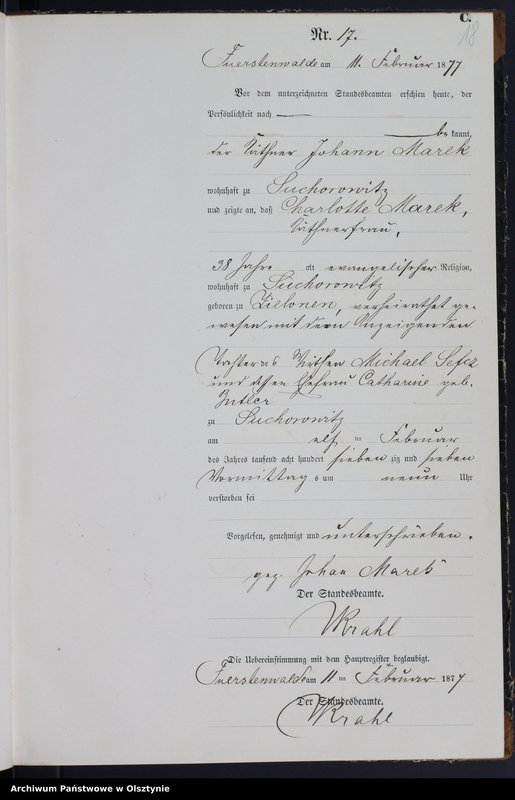 C.
18
Nr. 17.
Fuerstenwalde am 11. Februar 1877
Vor dem unterzeichneten Standesbeamten erschien heute, der
Persönlichkeit nach
be kannt,
der Käthner Johann Marek
wohnhaft zu Suchorowitz
und zeigte an, daß Charlotte Marek,
Käthnerfrau,
38 Jahre alt evangelischer Religion,
wohnhaft zu Suchorowitz
geboren zu Zielonen, verheirathet ge-
wesen mit dem Anzeigenden
Tochter des Wirthen Michael
und dessen Ehefrau Catharine geb.
zu Suchorowitz
am elf ten Februar
des Jahres tausend acht hundert sieben zig und sieben
Vormittag s um neun Uhr
verstorben sei
Vorgelesen, genehmigt und unterschrieben.
gez. Johan Marek
Der Standesbeamte.
Krahl
Die Uebereinstimmung mit dem Hauptregister beglaubigt.
Fuerstenwalde am 11 ten Februar 1877
Der Standesbeamte.
Krahl
Archiwum Państwowe w Olsztynie